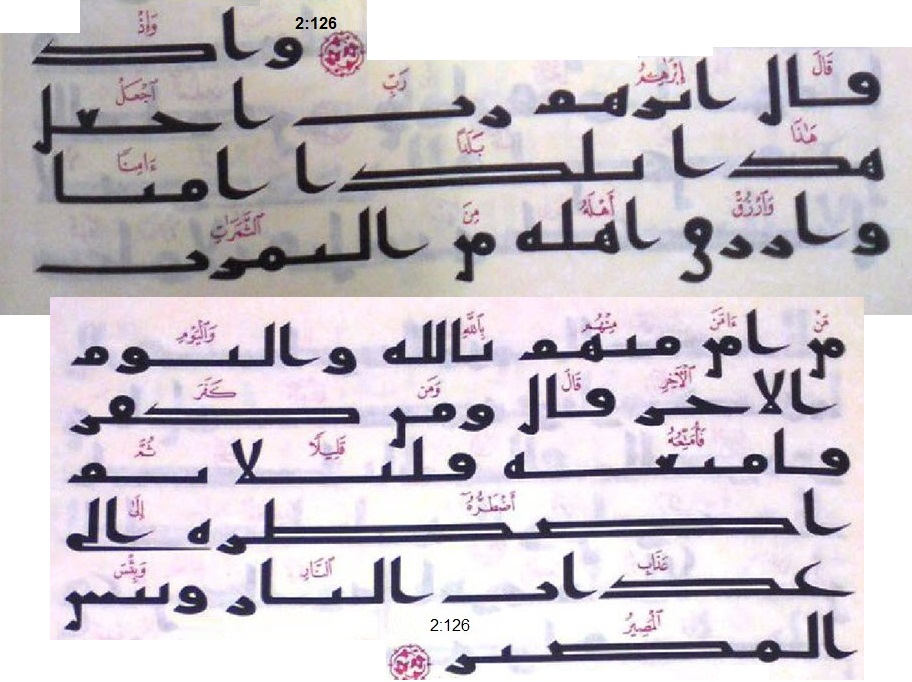 2:126
وَإِذْ
واذ
قَالَ إِبْرَٰهِـۧمُ رَبِّ ٱجْعَلْ
قال ابرهم رب اجعل
هَٰذَا بَلَدًا ءَامِنًا
هذا بلدا امنا
وَٱرْزُقْ أَهْلَهُۥ مِنَ ٱلثَّمَرَٰتِ
وارزق اهله من الثمرت
مَنْ ءَامَنَ مِنْهُم بِٱللَّهِ وَٱلْيَوْمِ
من امن منهم بالله واليوم
ٱلْأَخِرِ قَالَ وَمَن كَفَرَ
الاخر قال ومن كفر
فَأُمَتِّعُهُۥ قَلِيلًا ثُمَّ
فامتعه قليلا ثم
أَضْطَرُّهُۥٓ إِلَىٰ
اضطره الى
عَذَابِ ٱلنَّارِ وَبِئْسَ
عذاب النار وبئس
ٱلْمَصِيرُ
المصير
2:126